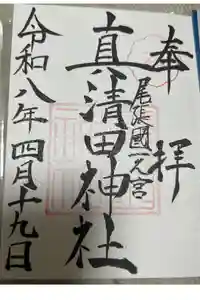 奉拝
尾張國一之宮
真清田神社
令和八年四月十九日